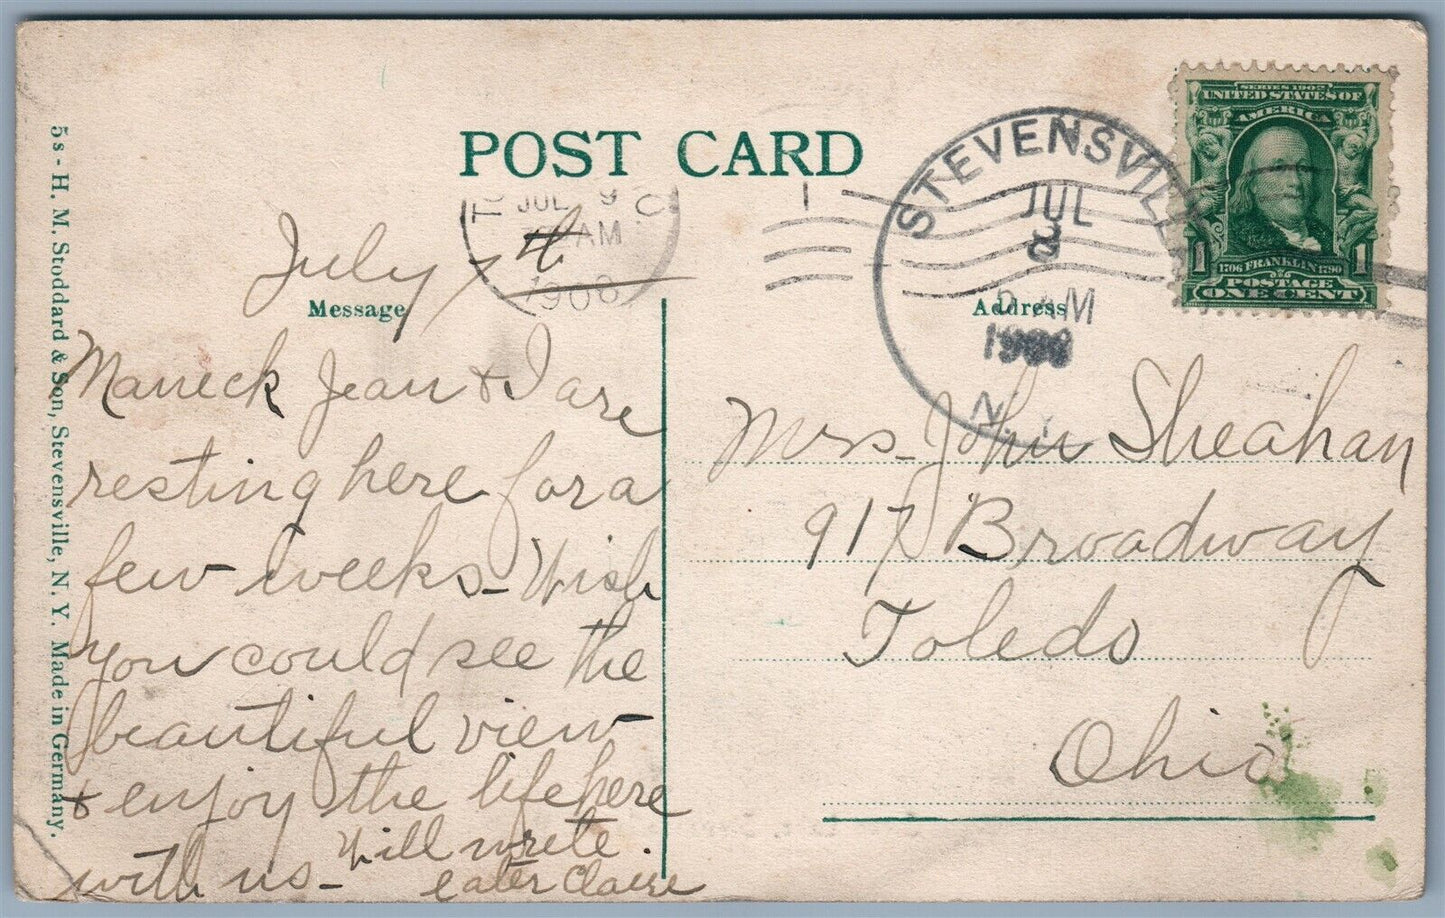 POST CARD
5s - H. M. Stoddard & Son, Stevensville, N. Y. Made in Germany.
JUL 9
AM
1908
STEVENSVILLE
JUL
8
M
1908
N.Y.
SERIES 1902
UNITED STATES OF
AMERICA
1 1
1706 FRANKLIN 1790
POSTAGE
ONE CENT
July 7th
Message
Maneck Jean & I are
resting here for a
few weeks - Wish
you could see the
beautiful view
& enjoy the life here
with us - Will write
later Claire
Address
Mrs. John Sheahan
917 Broadway
Toledo
Ohio